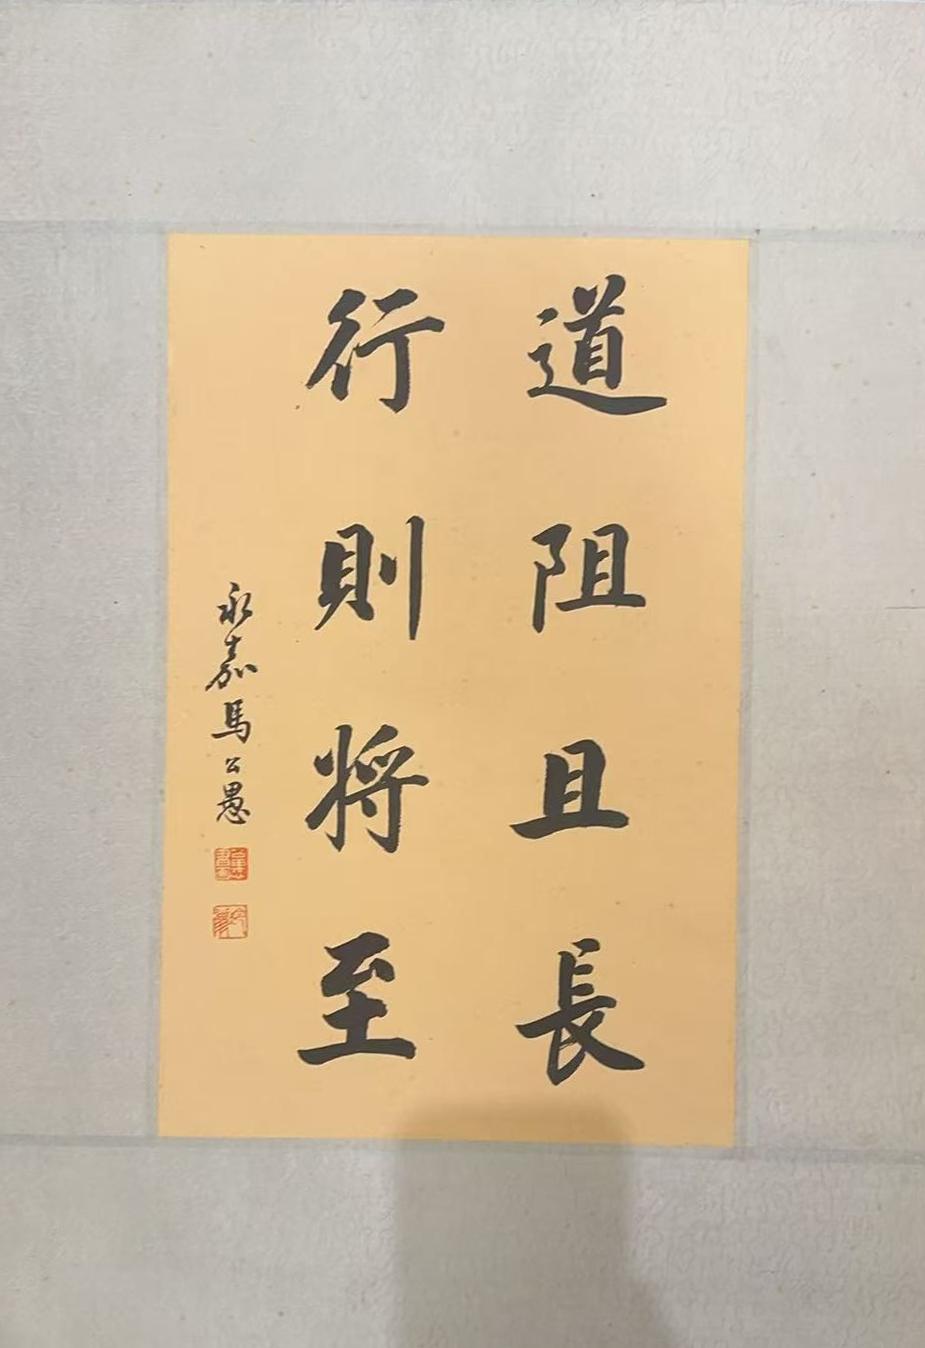 道阻且長
行則将至
永嘉馬公愚